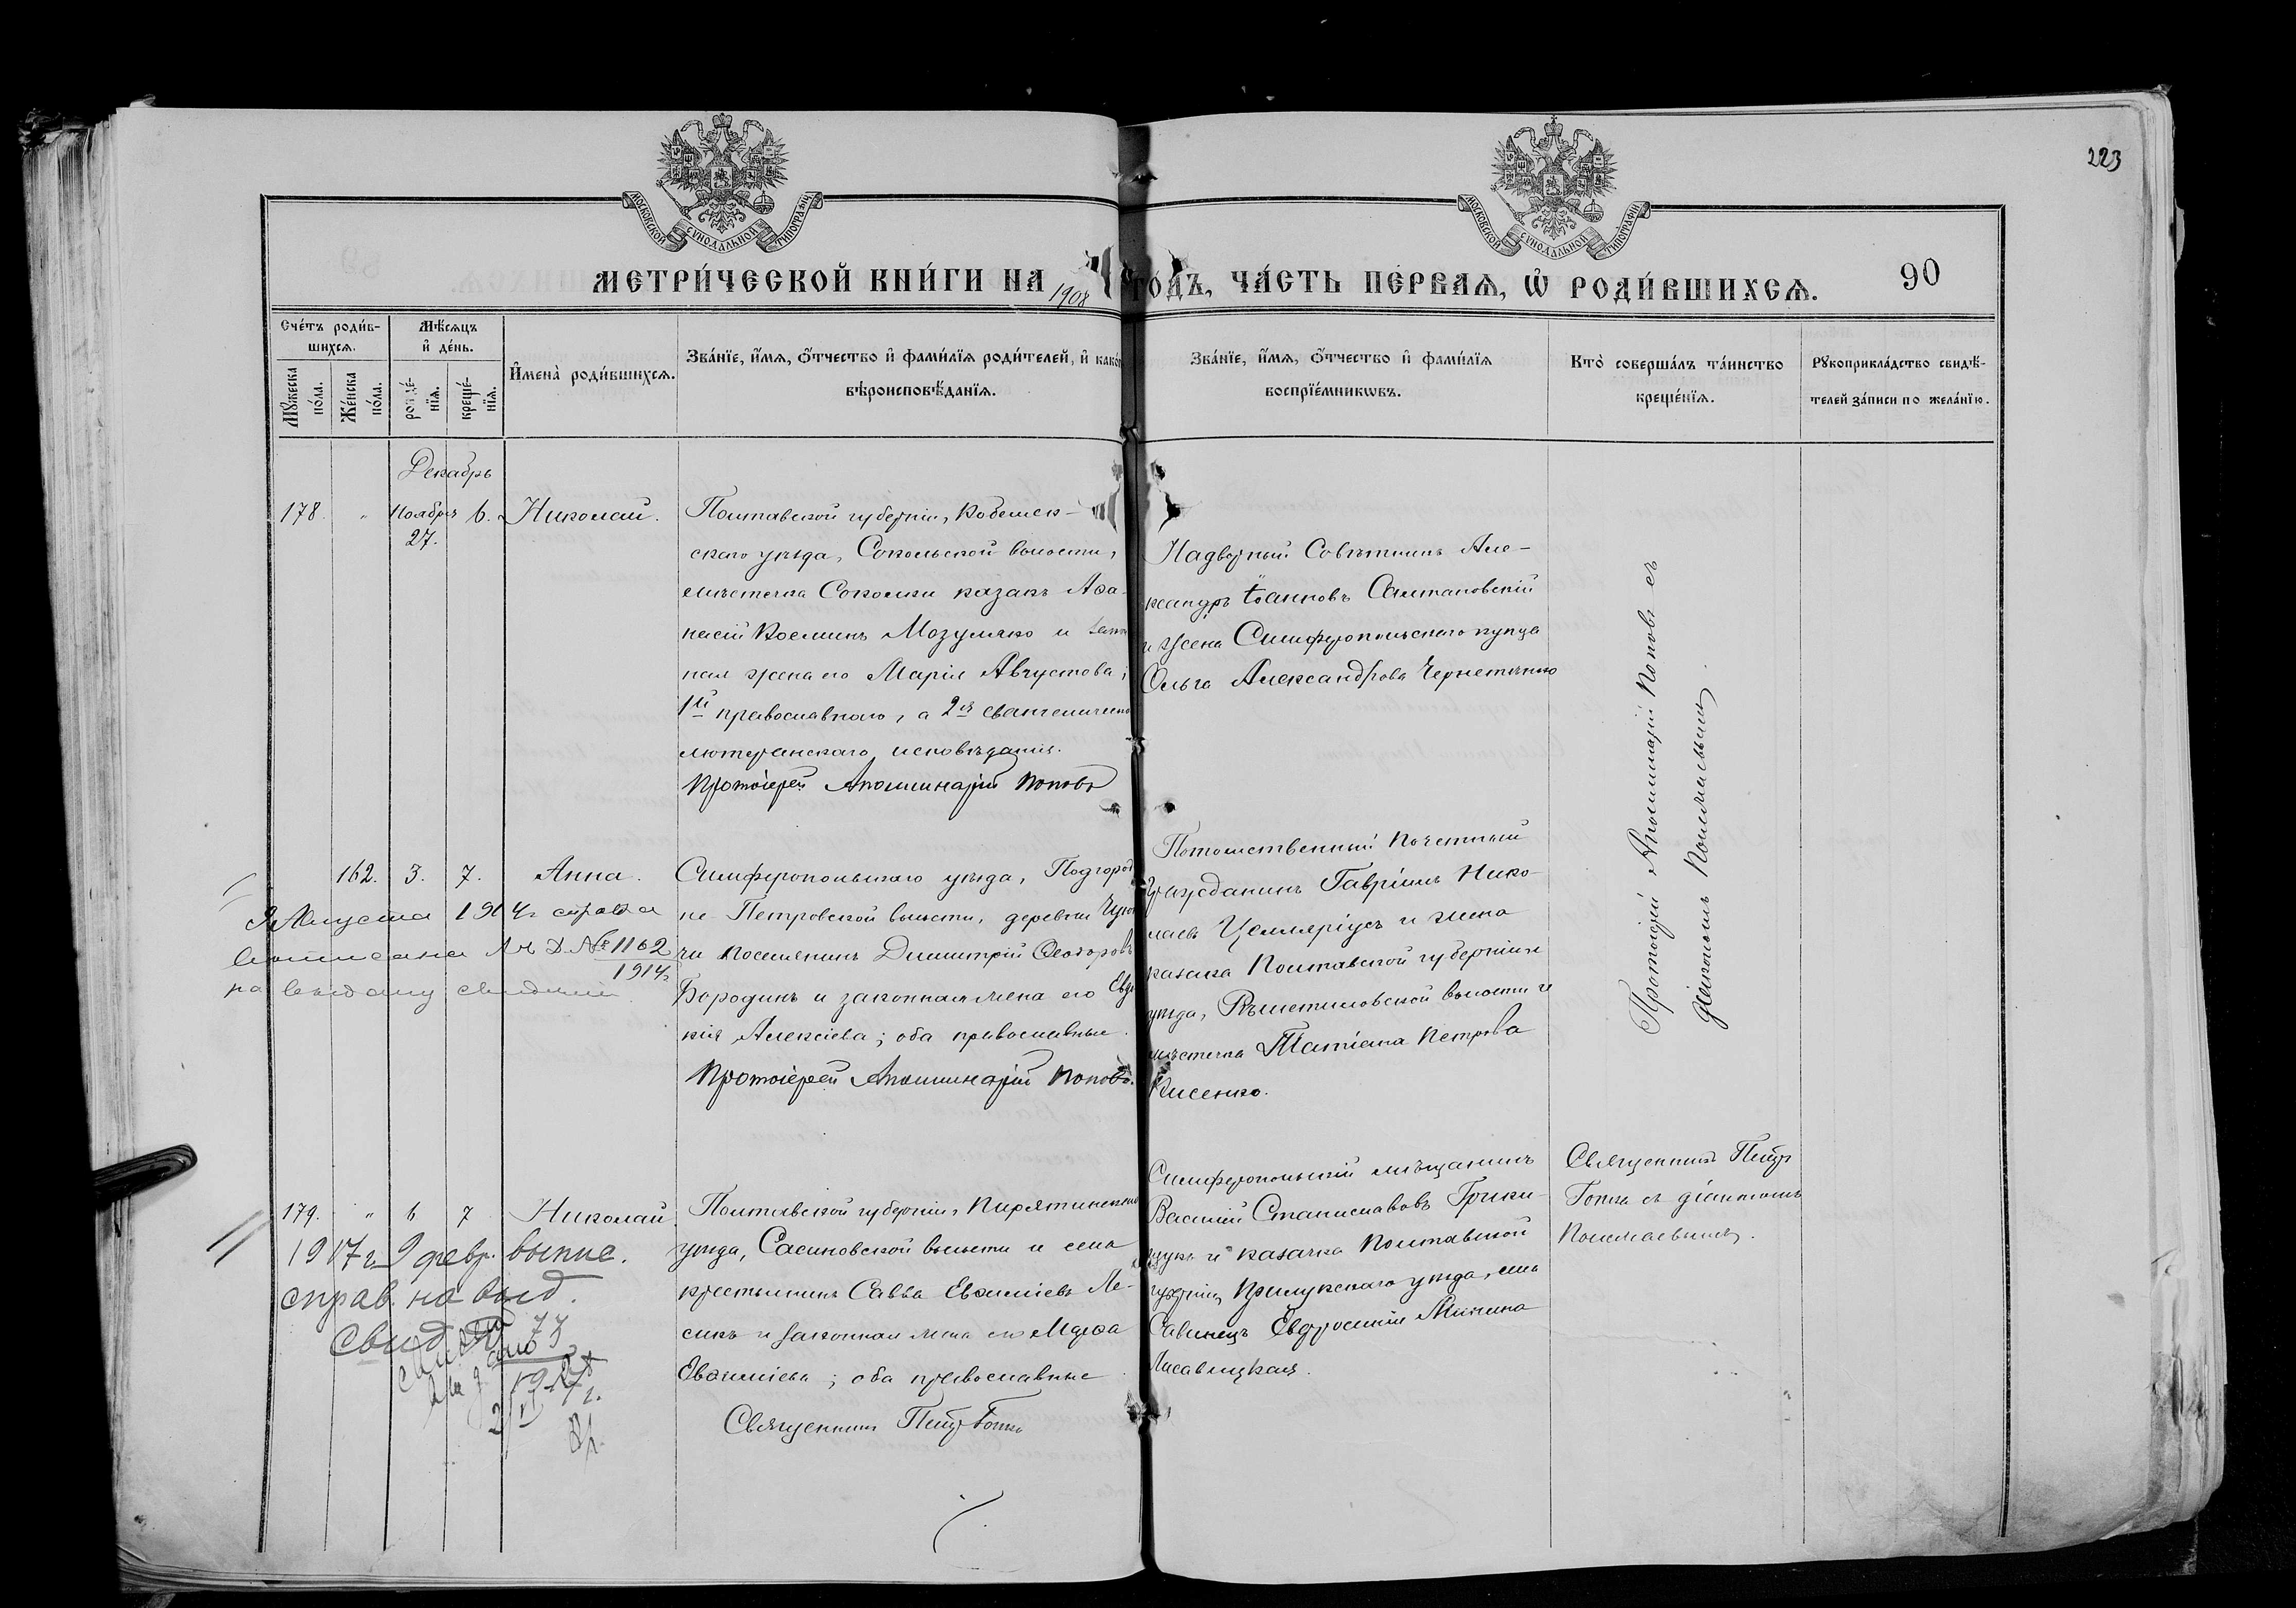 223
МОСКОВСКОЙ СУНОДАЛЬНОЙ ТИПОГРАФІИ
МОСКОВСКОЙ СУНОДАЛЬНОЙ ТИПОГРАФІИ
МЕТРИ́ЧЕСКОЙ КНИ́ГИ НА 1908 ГО́ДЪ, ЧА́СТЬ ПЕ́РВАѦ, Ѡ҆ РОДИ́ВШИХСѦ.
90
Сче́тъ роди́в-
шихсѧ.
Мꙋ́жеска
по́ла.
Же́нска
по́ла.
Мѣ́сѧцъ
и҆ де́нь.
рожде́-
нїѧ.
креще́-
нїѧ.
И҆мена̀ роди́вшихсѧ.
Зва́нїе, и҆́мѧ, ѻ҆́тчество и҆ фами́лїѧ роди́телей, и҆ како́
вѣроисповѣ́данїѧ.
Зва́нїе, и҆́мѧ, ѻ҆́тчество и҆ фами́лїѧ
воспрїе́мникѡвъ.
Кто̀ соверша́лъ та́инство
креще́нїѧ.
Рꙋкоприкла́дство свидѣ́-
телей за́писи по жела́нїю.
Декабрь
178. " Ноябрь 27. 6. Николай.
Полтавской губерніи, Кобеляк-
скаго уѣзда, Сокольской волости,
мѣстечка Соколки казакъ Аѳа-
насій Козминъ Мозулько и закон
ная жена его Марія Августова;
1й православнаго, а 2я евангелическо
лютеранскаго исповѣданія.
Протоіерей Аполлинарій Поповъ
Надворный Совѣтникъ Але-
ксандръ Іоанновъ Салтановскій
и жена Симферопольскаго купца
Ольга Александрова Чернетенко
Протоіерей Аполлинарій Поповъ съ
діакономъ
162. 3. 7. Анна.
Симферопольскаго уѣзда, Подгород
не-Петровской волости, деревни
чи поселянинъ Димитрій Ѳеодоровъ
Бородинъ и законная жена его Евдо
кія Алексіева; оба православные.
Протоіерей Аполлинарій Поповъ.
Потомственный Почетный
Гражданинъ Гавріилъ Нико-
лаевъ Целляріусъ и жена
казака Полтавской губерніи и
уѣзда, Рѣшетиловской волости и
мѣстечка Татіана Петрова
Кисенко.
Августа 1914г справка
выписана № 1162
1914г
на выдачу
179. " 6 7 Николай.
Полтавской губерніи, Пирятинскаго
уѣзда, Сасиновской волости и села
крестьянинъ Савва Евѳиміевъ Ле-
сикъ и законная жена его Марѳа
Евѳиміева; оба православные.
Священникъ Петръ
Симферопольскій мѣщанинъ
Василій Станиславовъ Грики-
щукъ и казачка Полтавской
губерніи, Прилукскаго уѣзда, села
Савинецъ Евфросинія Минина
Лисавицкая.
Священникъ Петръ
съ діакономъ
1917г. 9 февр. выпис.
справ. на выд.
свид. 73